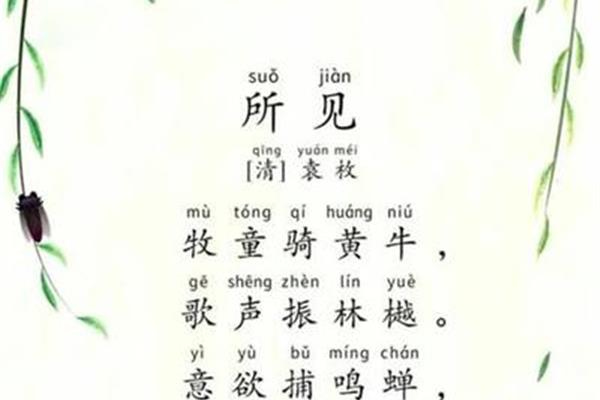 suǒ jiàn
所见
qīng yuán méi
[清]袁枚
mù tóng qí huáng niú
牧童骑黄牛，
gē shēng zhèn lín yuè
歌声振林樾。
yì yù bǔ míng chán
意欲捕鸣蝉，